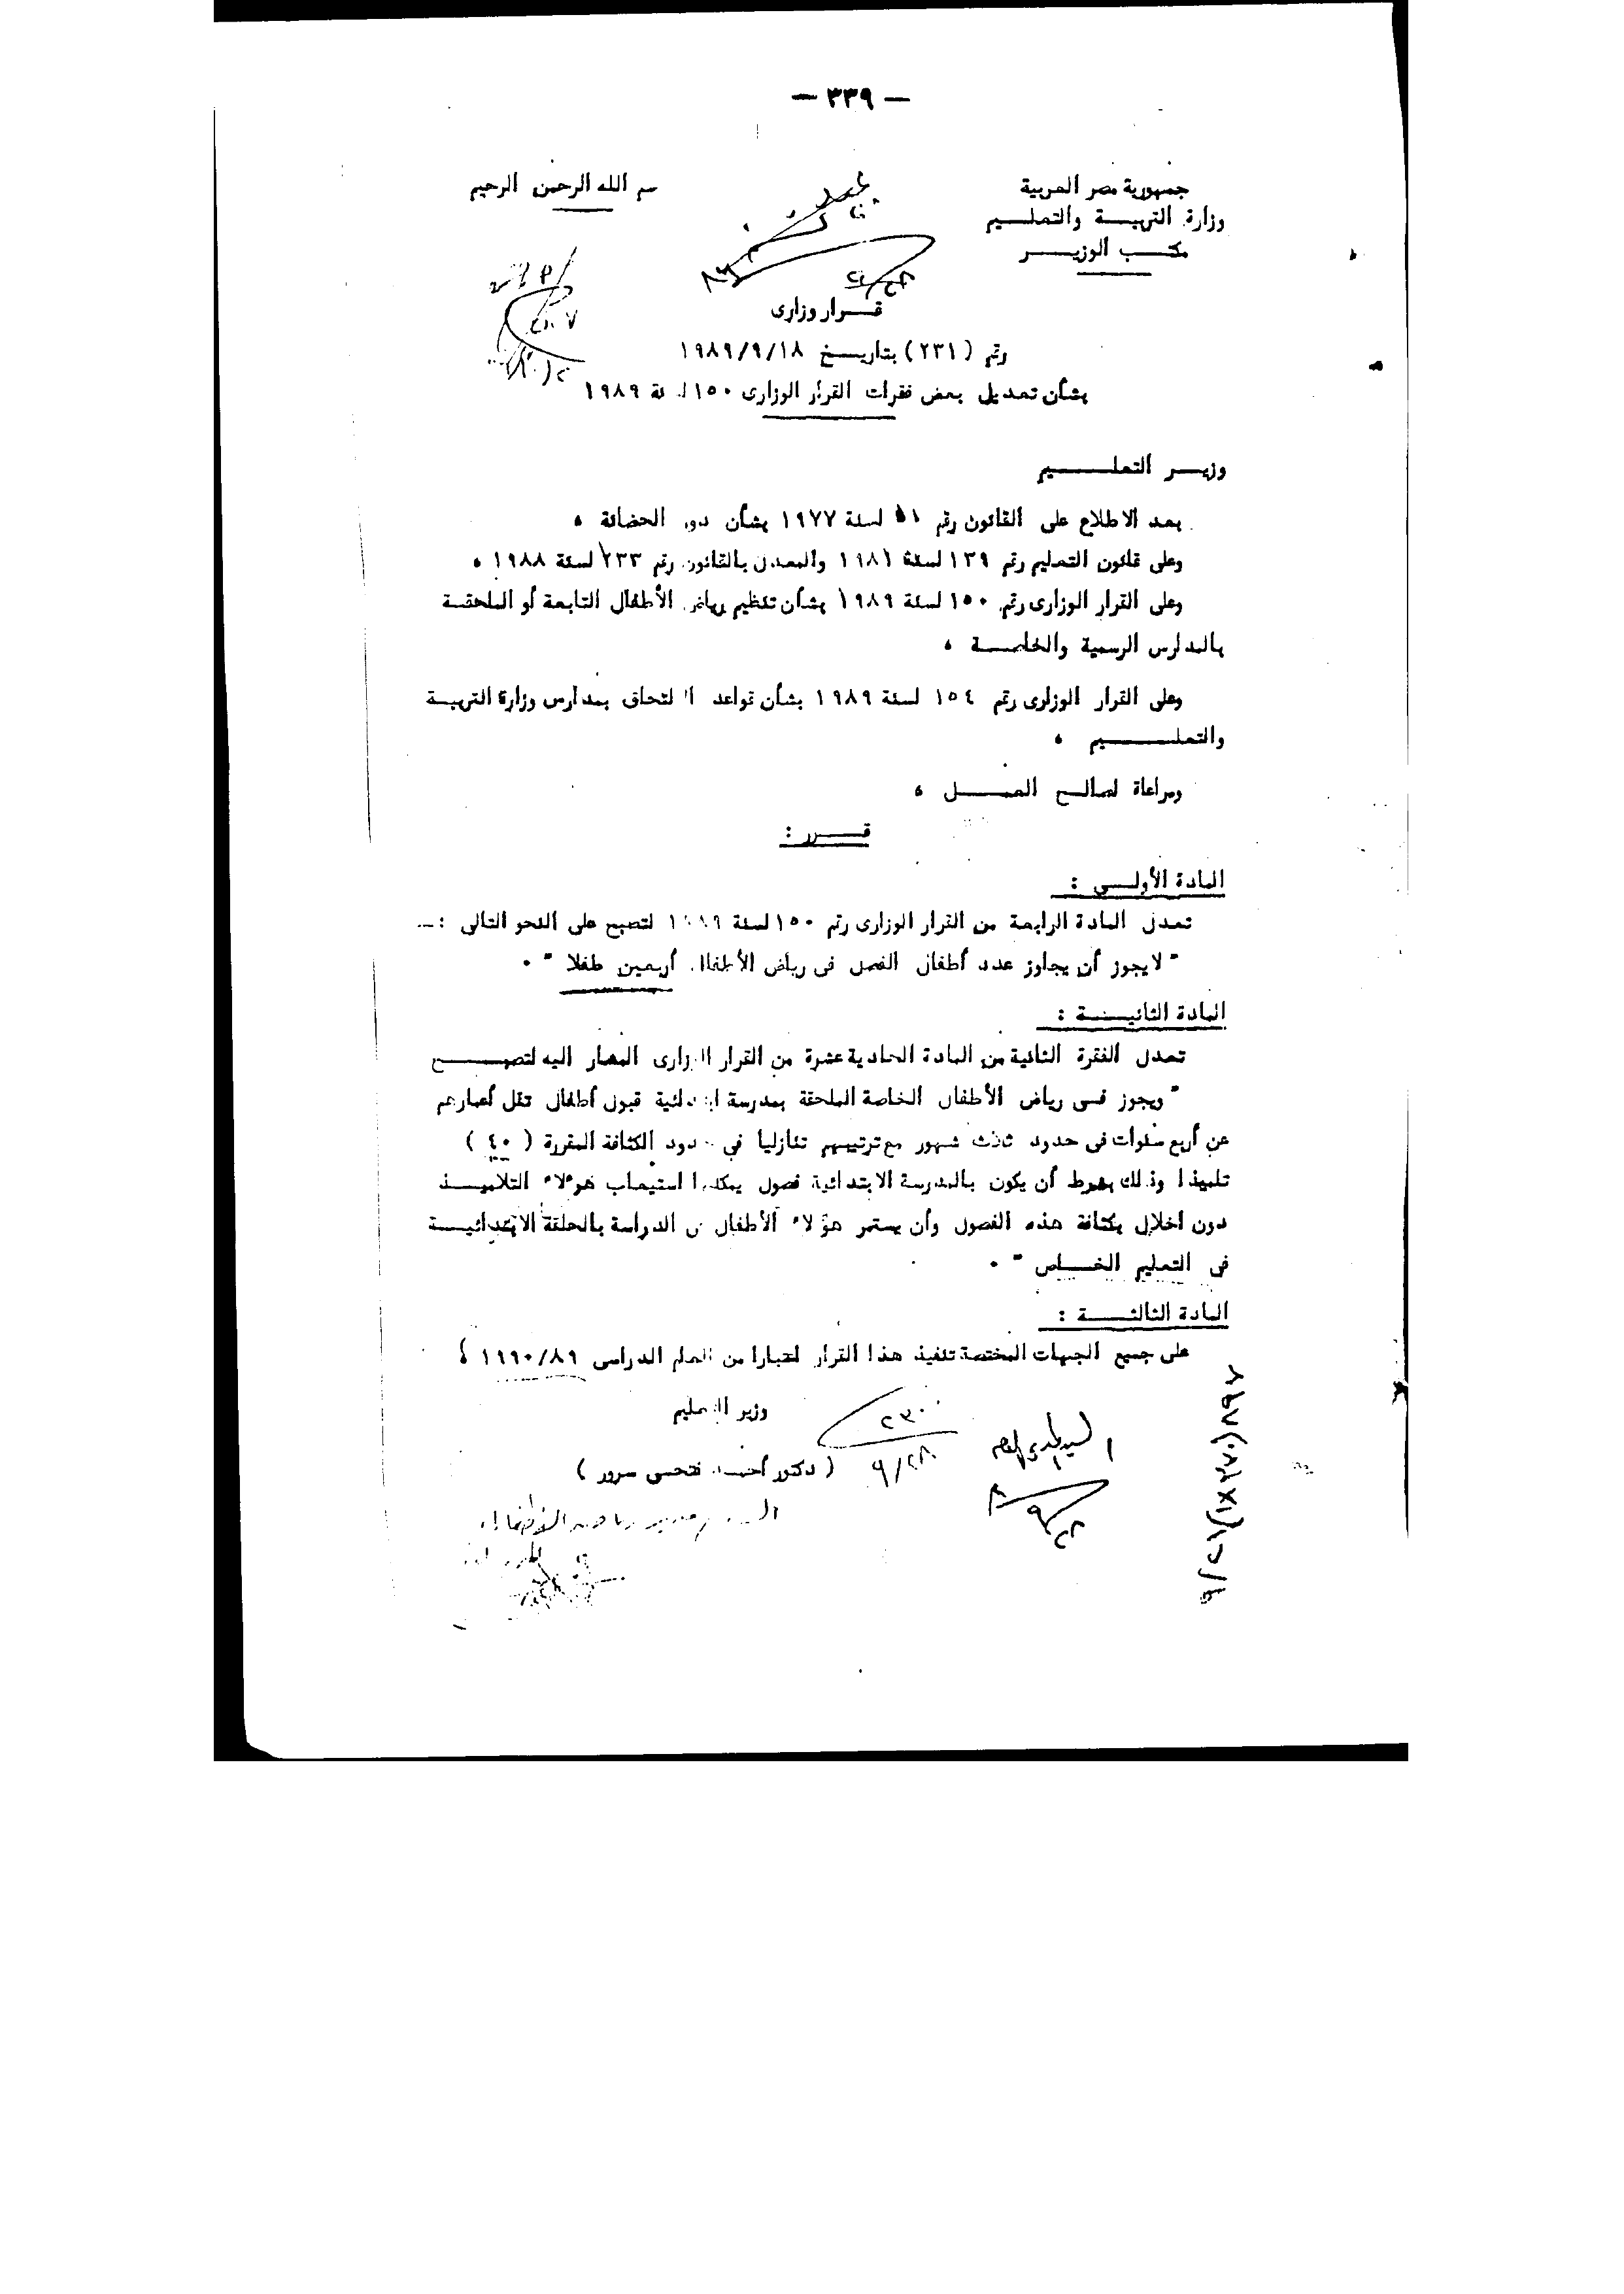 — ٣٣٩ —
جمهورية مصر العربية
وزارة التربيـــة والتعلـــيم
مكـــتب الوزيـــر
سم الله الرحمن الرحيم
قـــرار وزارى
رقم ( ٢٣١ ) بتاريـــخ ١٩٨٩/٩/١٨
بشأن تعديل بعض فقرات القرار الوزارى ١٥٠ لسنة ١٩٨٩
وزيـــر التعلـــــيم
بعد الاطلاع على القانون رقم لسنة ١٩٧٧ بشأن دور الحضانة ،
وعلى قانون التعليم رقم ١٣٩ لسنة ١٩٨١ والمعدل بالقانون رقم ٢٣٣ لسنة ١٩٨٨ ،
وعلى القرار الوزارى رقم ١٥٠ لسنة ١٩٨٩ بشأن تنظيم رياض الأطفال التابعة أو الملحقـــة
بالمدارس الرسمية والخاصـــة ،
وعلى القرار الوزارى رقم ١٥٤ لسنة ١٩٨٩ بشأن قواعد الالتحاق بمدارس وزارة التربيـــة
والتعلـــــيم ،
ومراعاة لصالـــح العمـــــل ،
قـــــرر :
المادة الأولـــى :
تعدل المادة الرابعة من القرار الوزارى رقم ١٥٠ لسنة ١٩٨٩ لتصبح على النحو التالى : —
" لا يجوز أن يجاوز عدد أطفال الفصل فى رياض الأطفال أربعين طفلا " .
المادة الثانيـــــة :
تعدل الفقرة الثانية من المادة الحادية عشرة من القرار الوزارى المشار اليه لتصبـــــح
" ويجوز فـــى رياض الأطفال الخاصة الملحقة بمدرسة ابتدائية قبول أطفال تقل أعمارهم
عن أربع سنوات فى حدود ثلاث شهور مع ترتيبهم تنازليا في حدود الكثافة المقررة ( ٤٠ )
تلميذا وذلك بشرط أن يكون بالمدرسة الابتدائية فصول يمكنها استيعاب هؤلاء التلاميـــذ
دون اخلال بكثافة هذه الفصول وأن يستمر هؤلاء الأطفال فى الدراسة بالحلقة الابتدائيـــة
فى التعليم الخـــاص " .
المادة الثالثـــــة :
على جميع الجهات المختصة تنفيذ هذا القرار اعتبارا من العام الدراسى ١٩٩٠/٨٩ ،
وزير التعليم
( دكتور أحمـــد فتحـــى سرور )
٢٣٠٠